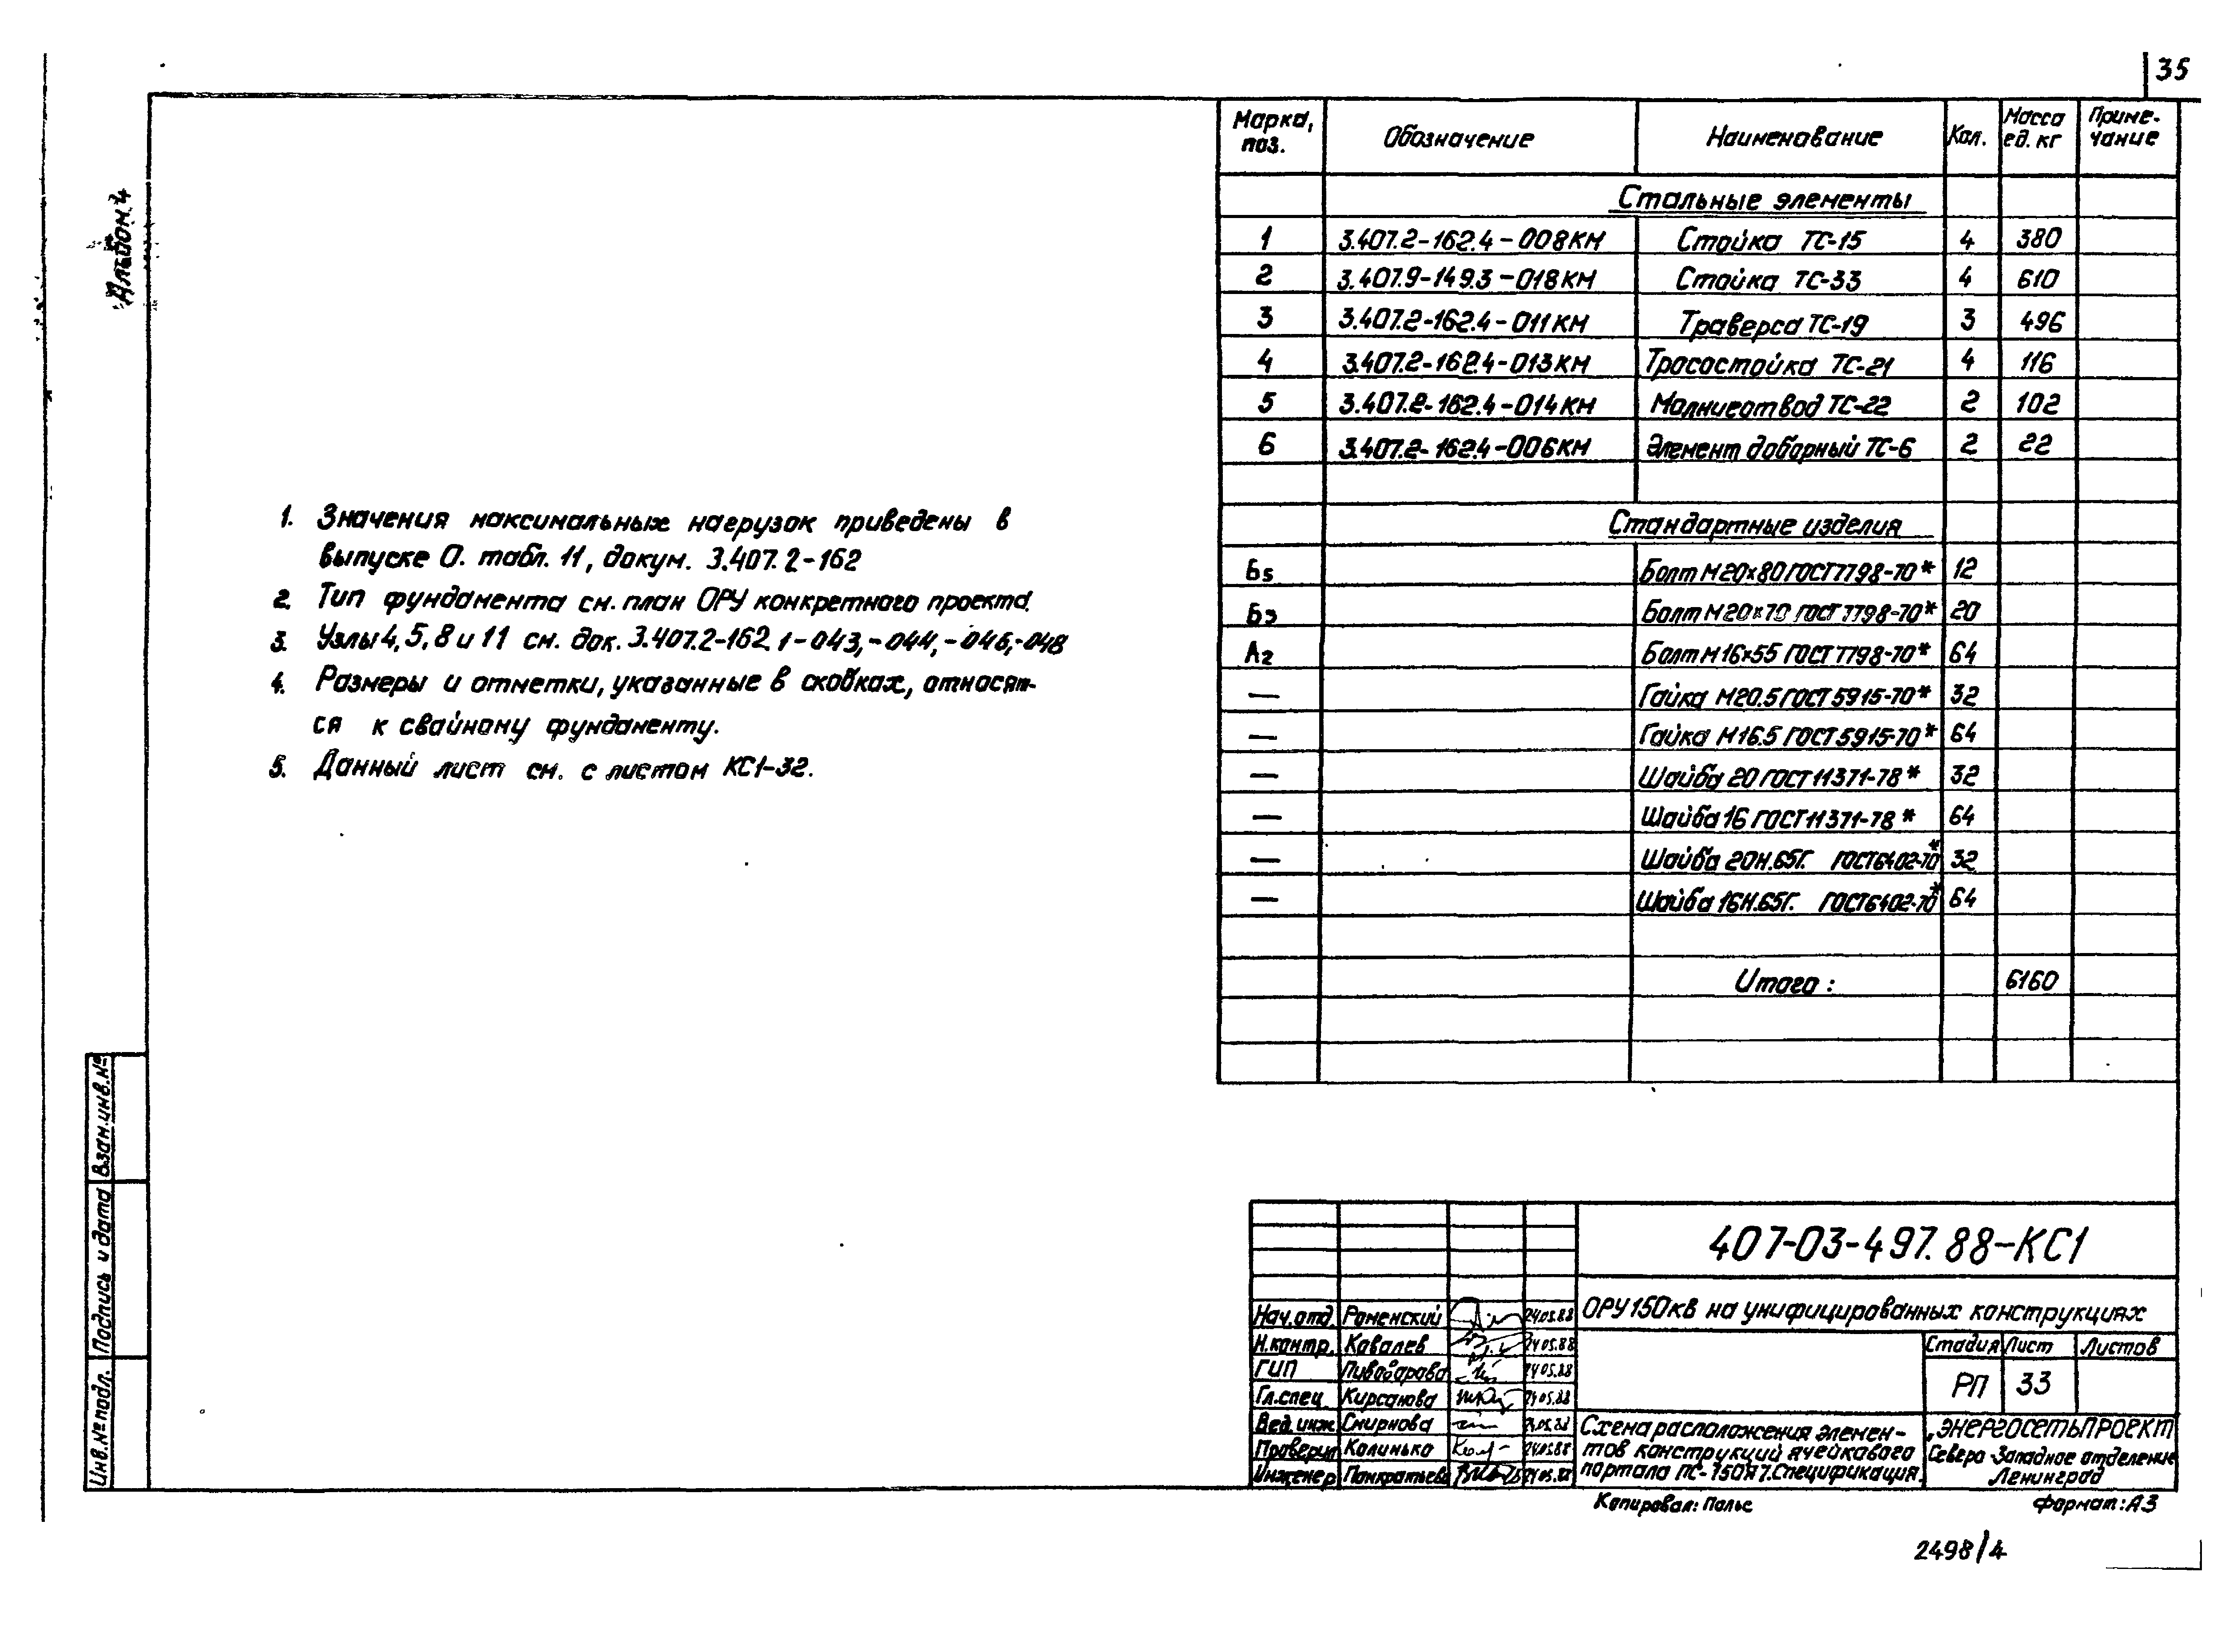 35
Альбом 4
Марка, поз. Обозначение Наименование Кол. Масса ед. кг Приме-чание
Стальные элементы
1 3.407.2-162.4-008КМ Стойка ТС-15 4 380
2 3.407.9-149.3-018КМ Стойка ТС-33 4 610
3 3.407.2-162.4-011КМ Траверса ТС-19 3 496
4 3.407.2-162.4-013КМ Тросостойка ТС-21 4 116
5 3.407.2-162.4-014КМ Молниеотвод ТС-22 2 102
6 3.407.2-162.4-006КМ Элемент доборный ТС-6 2 22
Стандартные изделия
Б5 Болт М20×80 ГОСТ 7798-70* 12
Б3 Болт М20×70 ГОСТ 7798-70* 20
А2 Болт М16×55 ГОСТ 7798-70* 64
— Гайка М20.5 ГОСТ 5915-70* 32
— Гайка М16.5 ГОСТ 5915-70* 64
— Шайба 20 ГОСТ 11371-78* 32
— Шайба 16 ГОСТ 11371-78* 64
— Шайба 20Н.65Г. ГОСТ 6402-70* 32
— Шайба 16Н.65Г. ГОСТ 6402-70* 64
Итого: 6160
1. Значения максимальных нагрузок приведены в
выпуске 0. табл. 11, докум. 3.407.2-162
2. Тип фундамента см. план ОРУ конкретного проекта.
3. Узлы 4, 5, 8 и 11 см. док. 3.407.2-162.1-043,-044,-046,-048
4. Размеры и отметки, указанные в скобках, относят-
ся к свайному фундаменту.
5. Данный лист см. с листом КС1-32.
Взам.инв.№
Подпись и дата
Инв.№ подл.
407-03-497.88-КС1
ОРУ 150кВ на унифицированных конструкциях
Нач.отд. Роменский 24.05.88
Н.контр. Ковалев 24.05.88
ГИП Пивоварова 24.05.88
Гл.спец. Кирсанова 24.05.88
Вед.инж. Смирнова 24.05.88
Проверил Калинько 24.05.88
Инженер Панкратьева 24.05.88
Стадия Лист Листов
РП 33
Схема расположения элемен-
тов конструкций ячейкового
портала ПС-150Я7. Спецификация.
„ЭНЕРГОСЕТЬПРОЕКТ
Северо-Западное отделение
Ленинград
Копировал: Полье
Формат: А3
2498/4